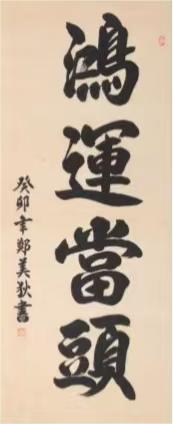 鴻運當頭
癸卯年鄭美狄書